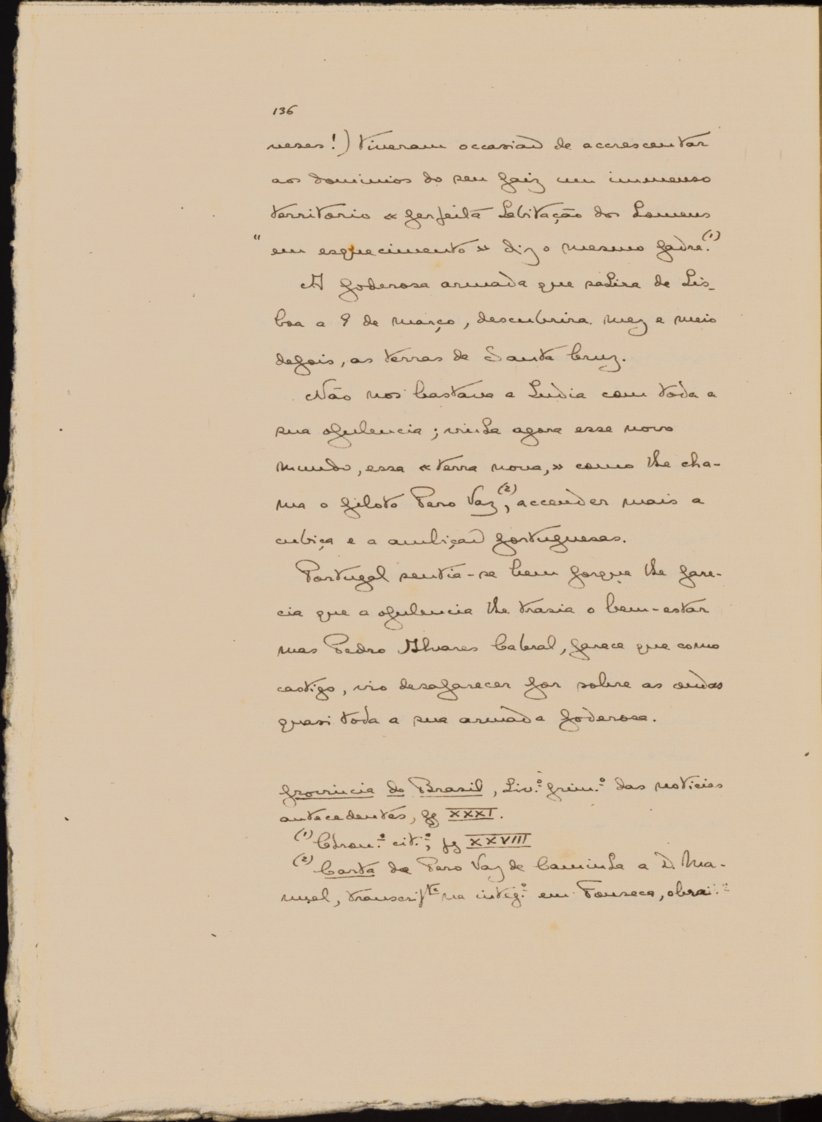 136
nezes!) tiveram occasião de accrescentar
aos dominios do seu paiz um immenso
territorio « perfeita habitação dos homens
" em esquecimento » diz o mesmo padre.(1)
A poderosa armada que sahira de Lis-
boa a 9 de março, descubrira mez e meio
depois, as terras de Santa Cruz.
Não nos bastava a India com toda a
sua opulencia; vinha agora esse novo
mundo, essa « terra nova, » como lhe cha-
ma o piloto Pero Vaz(2), accender mais a
cubiça e a ambição portuguesas.
Portugal sentia-se bem porque lhe pare-
cia que a opulencia lhe trasia o bem-estar
mas Pedro Alvares Cabral, parece que como
castigo, viu desaparecer por sobre as ondas
quasi toda a sua armada poderosa.
provincia do Brasil, Liv.º prim.º das noticias
antecedentes, pg XXXI.
(1) Chron.ª cit.ª; pg XXVIII
(2) Carta de Pero Vaz de Caminha a D Ma-
nuel, transcripta na integ.ª em Fonseca, obra